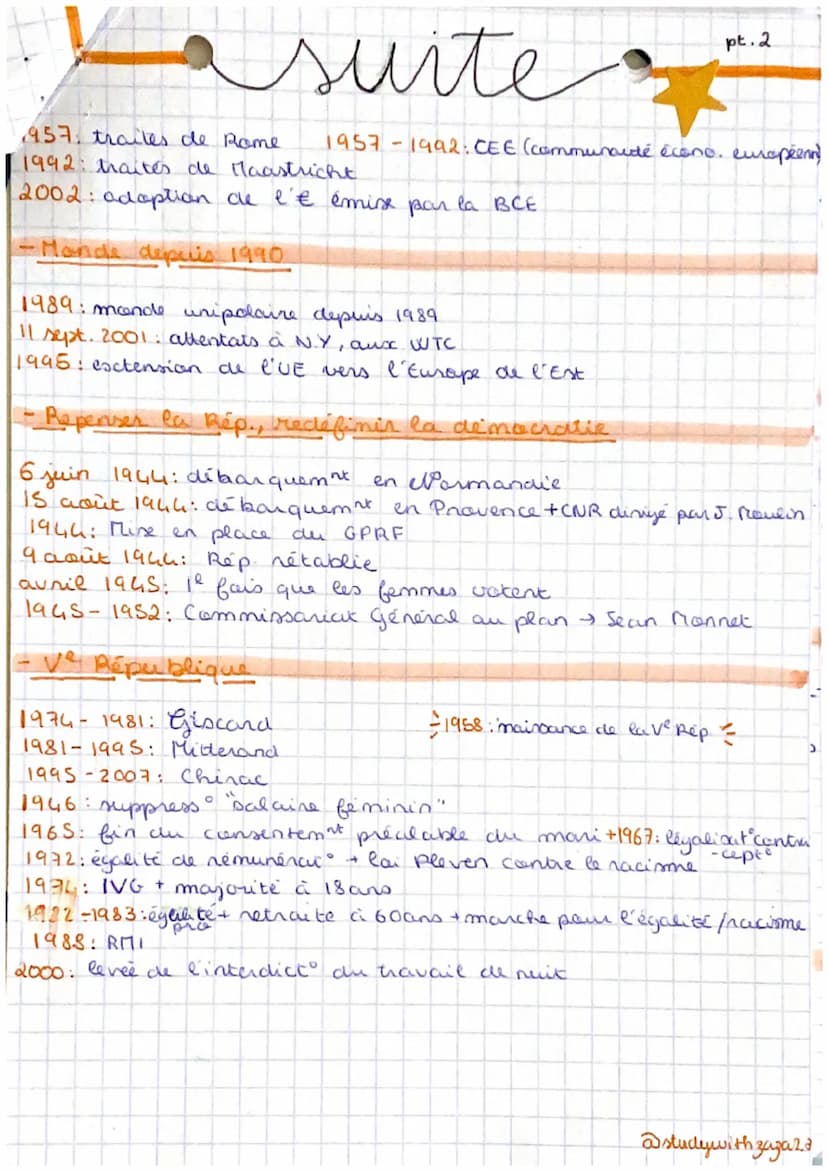 suite
pt.2
1957: traités de Rome 1957-1992: CEE (communauté écono. européenn)
1992: traités de Maastricht
2002: adoption de l'€ émise par la BCE
- Monde depuis 1990
1989: monde unipolaire depuis 1989
11 sept. 2001: attentats à N.Y, aux WTC
1995: esctension de l'UE vers l'Europe de l'Est
- Repenser la Rép., redéfinir la démocratie
6 juin 1944: débarquemnt en Normandie
15 août 1944: débarquemnt en Provence + CNR dirigé par J. Moulin
1944: Mise en place du GPRF
9 août 1944: Rép. rétablie
avril 1945: 1e fois que les femmes votent
1945-1952: Commissariat Général au plan → Jean Monnet
- Ve République
1974-1981: Giscard 1958: naissance de la Ve Rép
1981-1995: Miderand
1995-2007: Chirac
1946: suppress° "salaire féminin"
1965: fin du consentemnt préalable du mari +1967: légalisat° contra
-cept°
1972: égalité de rémunérat° + loi Pleven contre le racisme
1974: IVG + majorité à 18 ans
1982-1983: égalité + retraite à 60ans + marche pour l'égalité/racisme
pro
1988: RMI
2000: levée de l'interdict° du travail de nuit
@studywithzaza23